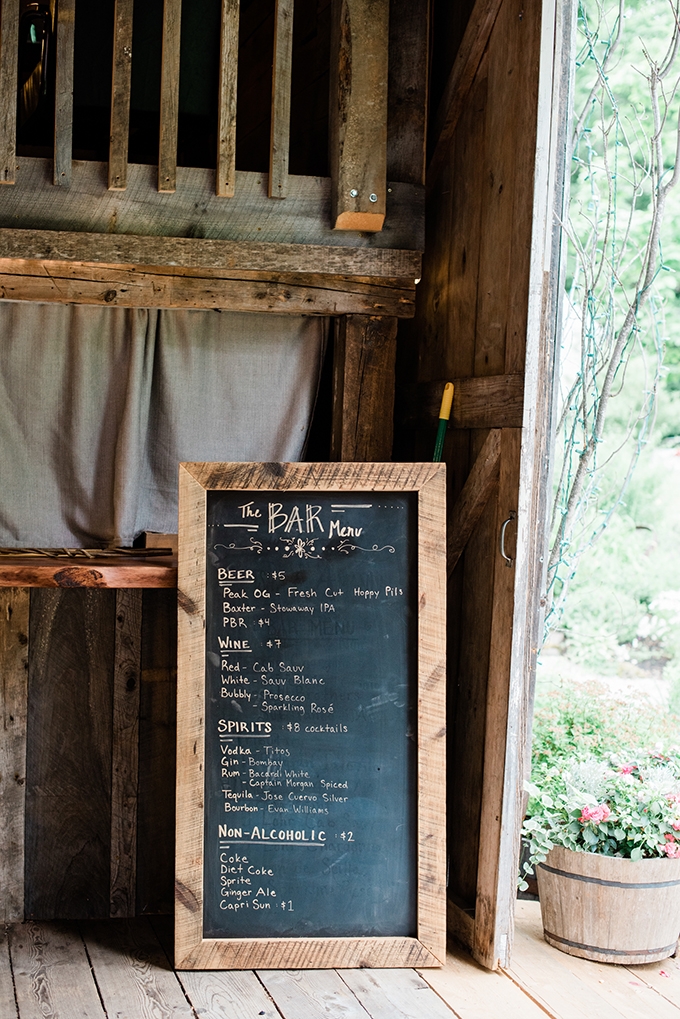 The BAR Menu
BEER : $5
Peak OG - Fresh Cut Hoppy Pils
Baxter - Stowaway IPA
PBR : $4
WINE : $7
Red - Cab Sauv
White - Sauv Blanc
Bubbly - Prosecco
- Sparkling Rosé
SPIRITS : $8 cocktails
Vodka - Titos
Gin - Bombay
Rum - Bacardi White
- Captain Morgan Spiced
Tequila - Jose Cuervo Silver
Bourbon - Evan Williams
NON-ALCOHOLIC : $2
Coke
Diet Coke
Sprite
Ginger Ale
Capri Sun : $1